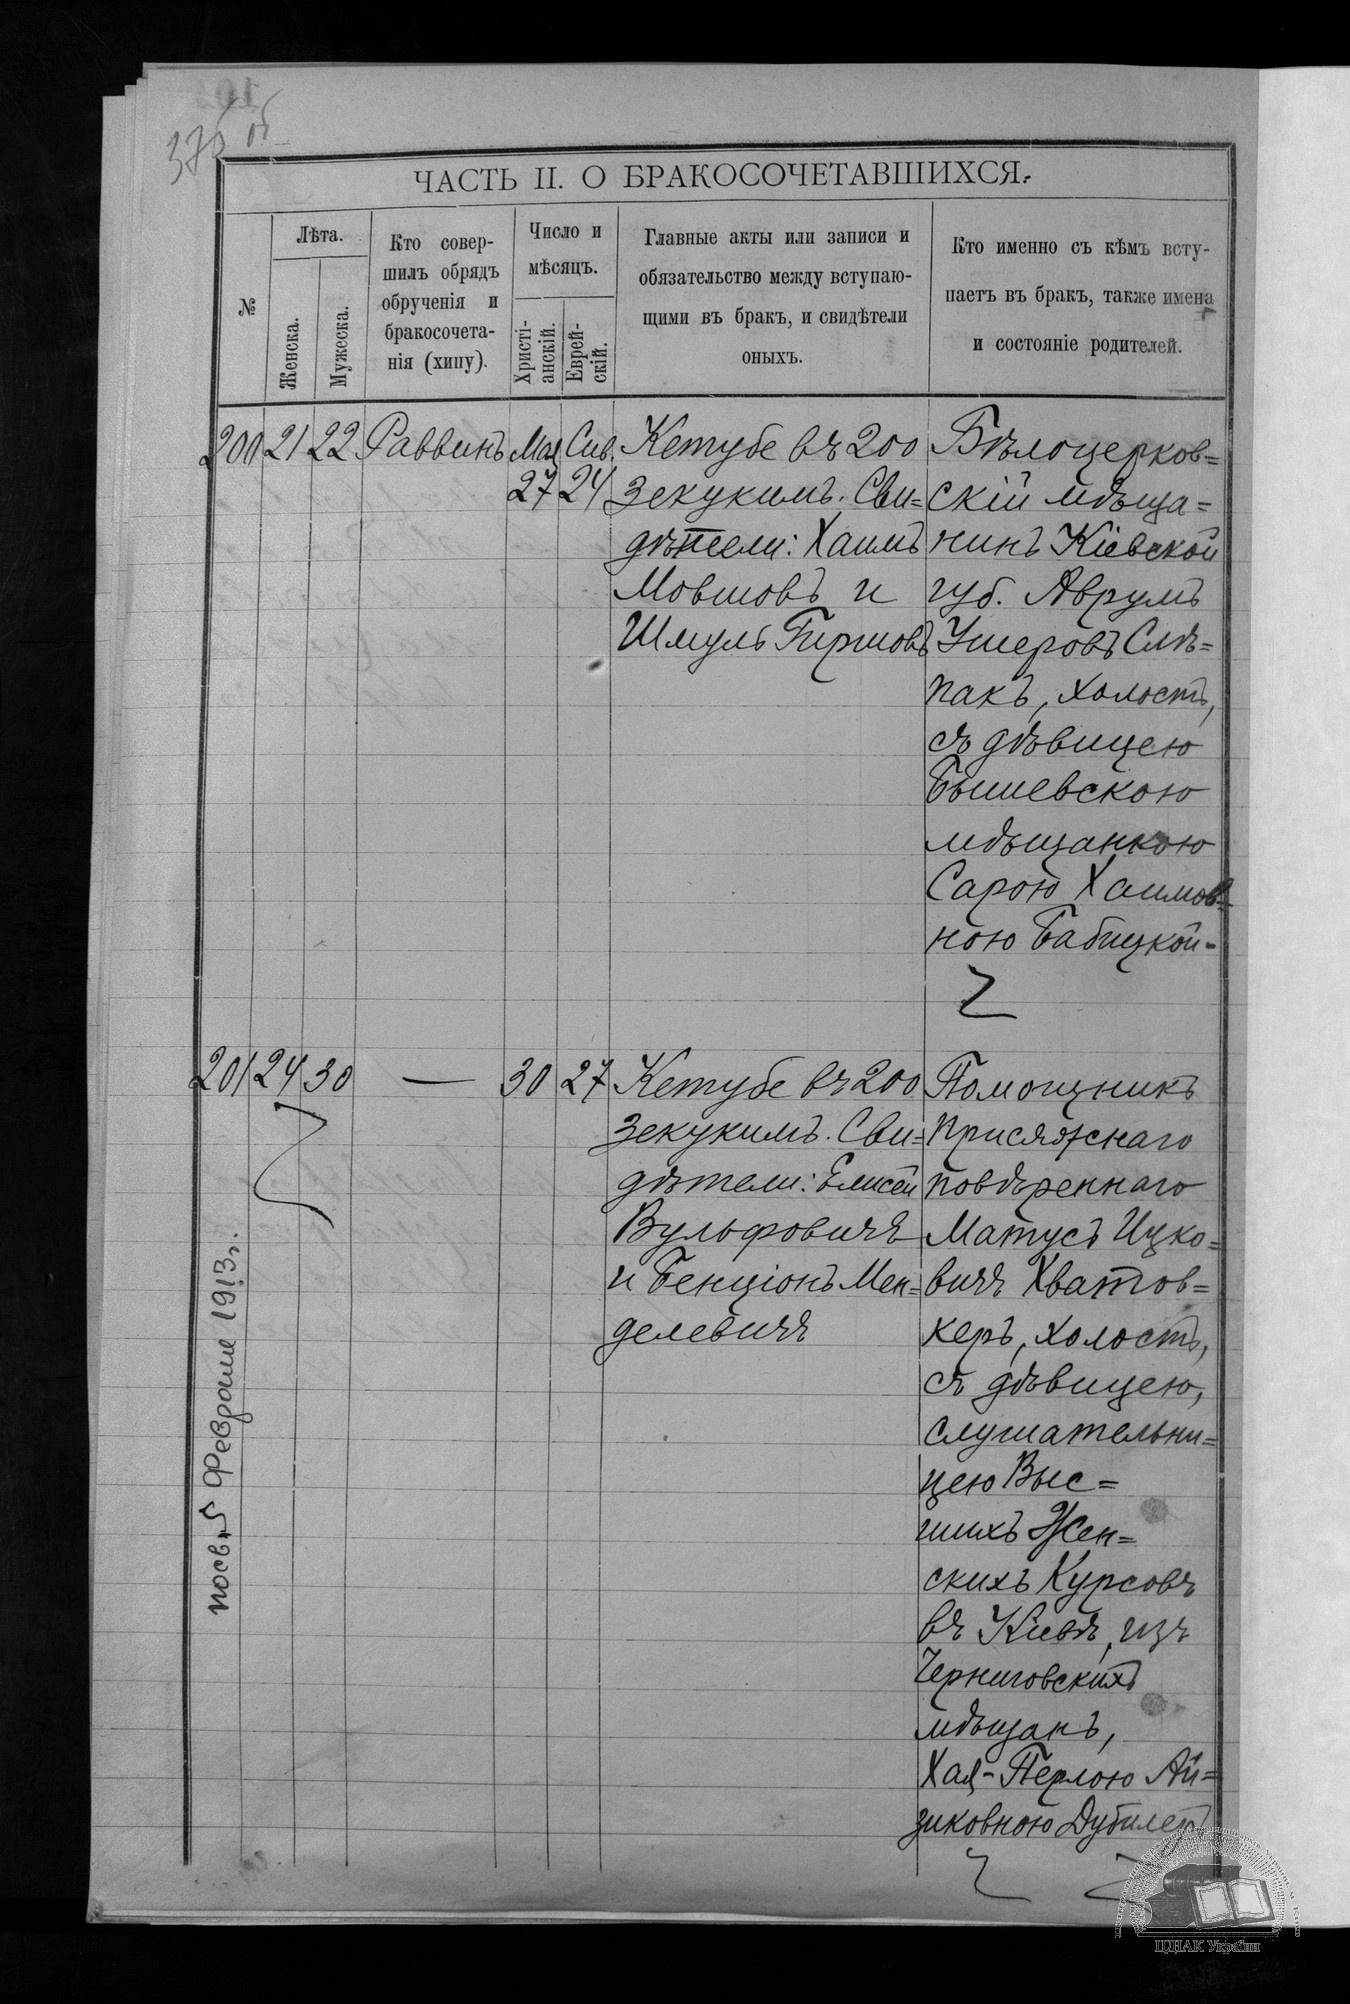 375 об
ЧАСТЬ II. О БРАКОСОЧЕТАВШИХСЯ.
№
Лѣта.
Женска.
Мужеска.
Кто совер-
шилъ обрядъ
обрученія и
бракосочета-
нія (хипу).
Число и
мѣсяцъ.
Христі-
анскій.
Еврей-
скій.
Главные акты или записи и
обязательство между вступаю-
щими въ бракъ, и свидѣтели
оныхъ.
Кто именно съ кѣмъ всту-
паетъ въ бракъ, также имена
и состояніе родителей.
200 21 22 Раввинъ Мая Сив.
27 24
Кетубе въ 200
Зекукимъ. Сви=
дѣтели: Хаимъ
Мовшовъ и
Шмуль Гиршовъ
Бѣлоцерков=
скій мѣща=
нинъ Кіевской
губ. Аврумъ
Ушеровъ Слѣ=
пакъ, холостъ,
съ дѣвицею
Бышевскою
мѣщанкою
Сарою Хаимов=
ною Бабицкой-
201 24 30 — 30 27
Кетубе въ 200
Зекукимъ. Сви=
дѣтели: Елисей
Вульфовичъ
и Бенціонъ Мен=
делевичъ
Помощникъ
Присяжнаго
повѣреннаго
Матусъ Ицко=
вичъ Хватов=
керъ, холостъ,
съ дѣвицею,
слушательни=
цею Выс=
шихъ Жен=
скихъ Курсовъ
въ Кіевѣ, изъ
Черниговскихъ
мѣщанъ,
Хая-Перлою Ай=
зиковною Дубилетъ
посв. 5 Февраля 1913г.
ЦДІАК України